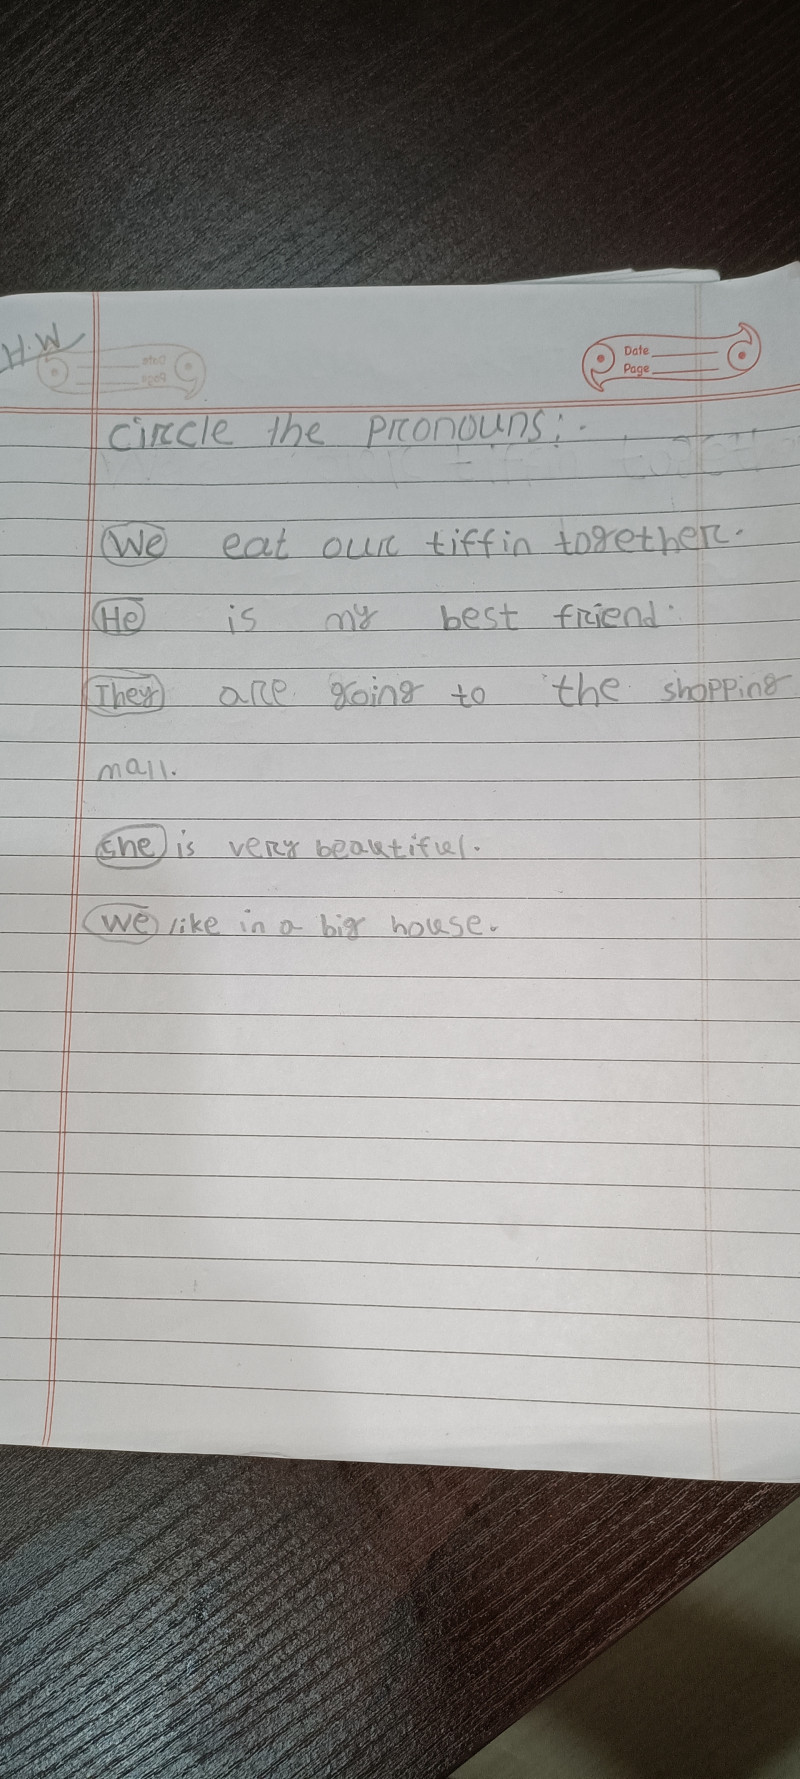 H.W
Date
Page
Circle the pronouns:-
We eat our tiffin together.
He is my best friend.
They are going to the shopping
mall.
She is very beautiful.
We like in a big house.